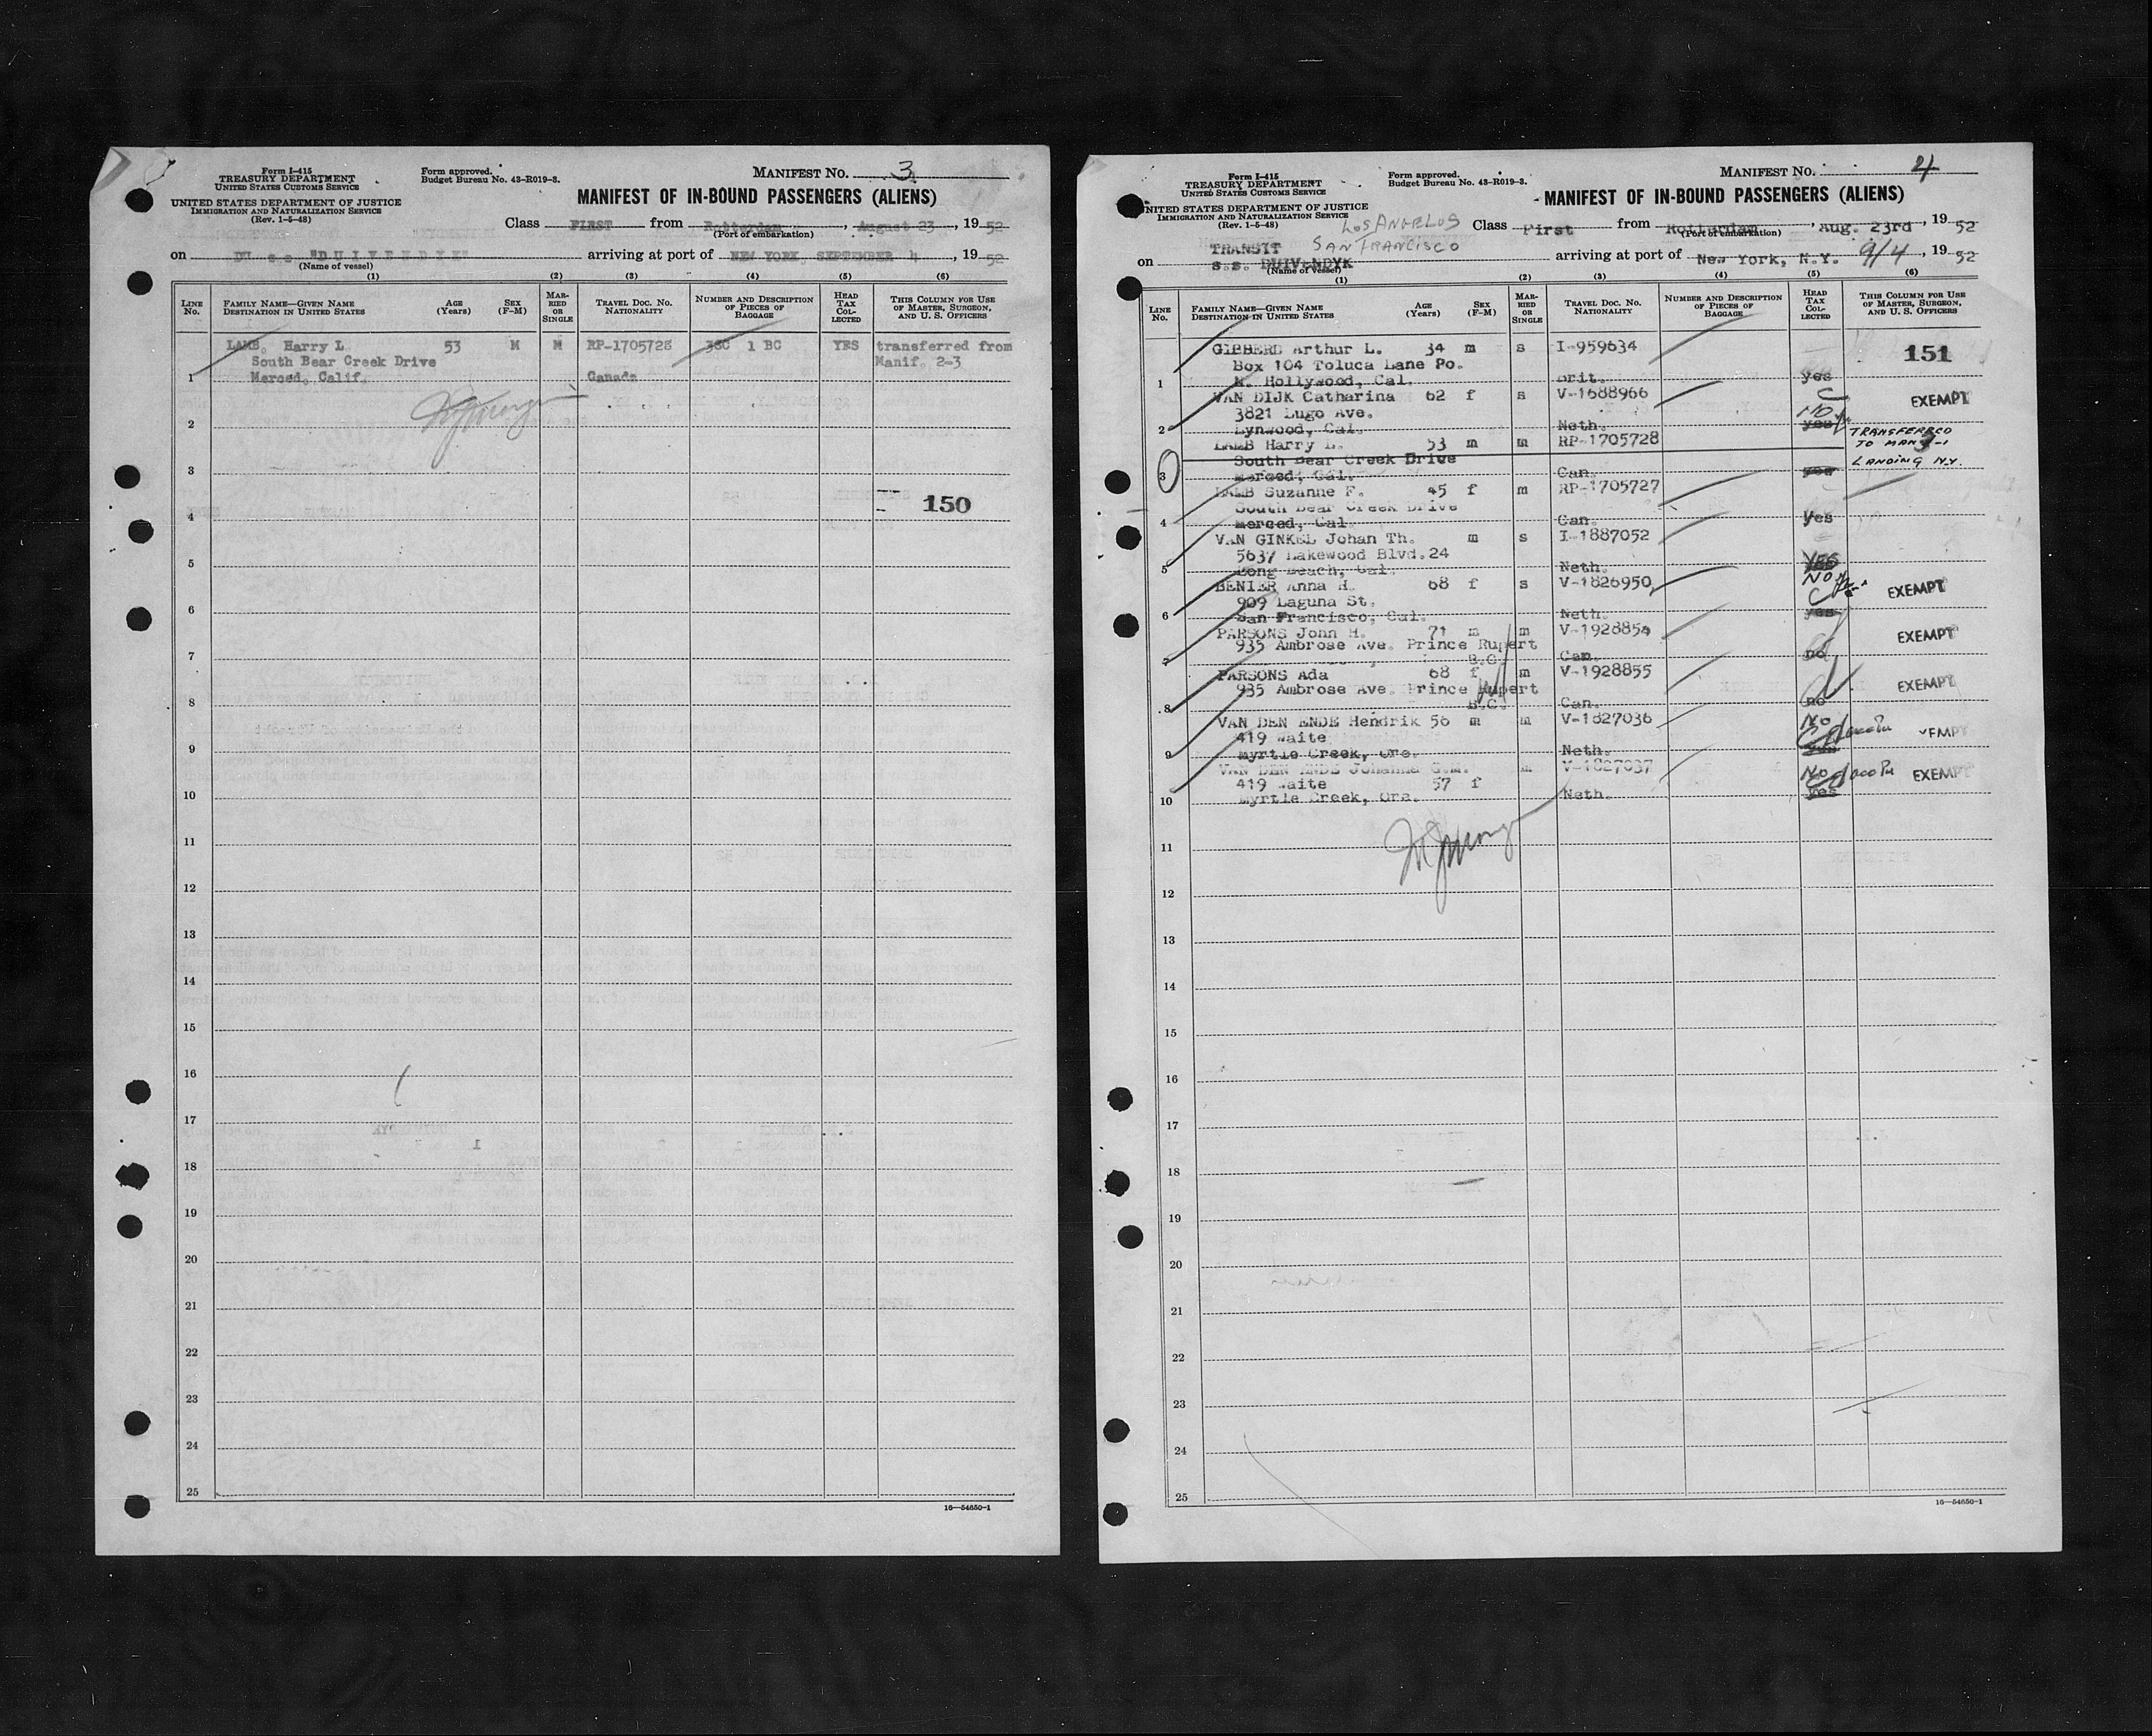 Form I-415
TREASURY DEPARTMENT
UNITED STATES CUSTOMS SERVICE
UNITED STATES DEPARTMENT OF JUSTICE
IMMIGRATION AND NATURALIZATION SERVICE
(Rev. 1-5-48)
Form approved.
Budget Bureau No. 43-R019-3.
MANIFEST No. 3
MANIFEST OF IN-BOUND PASSENGERS (ALIENS)
Class FIRST from Rotterdam, August 23, 1952
(Port of embarkation)
on s.s. "DUIVENDYK" arriving at port of NEW YORK, SEPTEMBER 4, 1952
(Name of vessel)
(1) (2) (3) (4) (5) (6)
LINE No. FAMILY NAME—GIVEN NAME DESTINATION IN UNITED STATES AGE (Years) SEX (F-M) MARRIED OR SINGLE TRAVEL DOC. NO. NATIONALITY NUMBER AND DESCRIPTION OF PIECES OF BAGGAGE HEAD TAX COLLECTED THIS COLUMN FOR USE OF MASTER, SURGEON, AND U. S. OFFICERS
LAMB, Harry L 53 M M RP-1705728 1 BC YES transferred from
South Bear Creek Drive Manif. 2-3
1 Merced, Calif. Canada
2
3
4 150
5
6
7
8
9
10
11
12
13
14
15
16
17
18
19
20
21
22
23
24
25
16—54650-1
Form I-415
TREASURY DEPARTMENT
UNITED STATES CUSTOMS SERVICE
UNITED STATES DEPARTMENT OF JUSTICE
IMMIGRATION AND NATURALIZATION SERVICE
(Rev. 1-5-48)
Form approved.
Budget Bureau No. 43-R019-3.
MANIFEST No. 4
MANIFEST OF IN-BOUND PASSENGERS (ALIENS)
LOS ANGELOS
SAN FRANCISCO
Class First from Rotterdam, Aug. 23rd 1952
(Port of embarkation)
TRANSIT
on s.s. DUIVENDYK arriving at port of New York, N.Y. 9/4, 1952
(Name of vessel)
(1) (2) (3) (4) (5) (6)
LINE No. FAMILY NAME—GIVEN NAME DESTINATION IN UNITED STATES AGE (Years) SEX (F-M) MARRIED OR SINGLE TRAVEL DOC. NO. NATIONALITY NUMBER AND DESCRIPTION OF PIECES OF BAGGAGE HEAD TAX COLLECTED THIS COLUMN FOR USE OF MASTER, SURGEON, AND U. S. OFFICERS
GIBBERD Arthur L. 34 m s I-959634 151
Box 104 Toluca Lane Po.
1 N. Hollywood, Cal. Brit. yes
VAN DIJK Catharina 62 f s V-1688966 EXEMPT
3821 Lugo Ave. NO
2 Lynwood, Cal. Neth. yes
LAMB Harry L. 53 m m RP-1705728 TRANSFERRED
South Bear Creek Drive TO MAN 3-1
3 Merced, Cal. Can. yes LANDING N.Y.
LAMB Suzanne F. 45 f m RP-1705727
South Bear Creek Drive
4 Merced, Cal. Can. yes
VAN GINKEL Johan Th. m s I-1887052
5637 Lakewood Blvd. 24
5 Long Beach, Cal. Neth. YES
BENIER Anna H. 68 f s V-1826950 NO EXEMPT
909 Laguna St.
6 San Francisco, Cal. Neth. yes
PARSONS John H. 71 m m V-1928854 EXEMPT
935 Ambrose Ave. Prince Rupert
7 B.C. Can. no
PARSONS Ada 68 f m V-1928855 EXEMPT
935 Ambrose Ave. Prince Rupert
8 B.C. Can. no
VAN DEN ENDE Hendrik 56 m m V-1827036 No
419 Waite
9 Myrtle Creek, Ore. Neth. yes
VAN DEN ENDE Johanna G.M. m V-1827037 No EXEMPT
419 Waite 57 f
10 Myrtle Creek, Ore. Neth. yes
11
12
13
14
15
16
17
18
19
20
21
22
23
24
25
16—54650-1